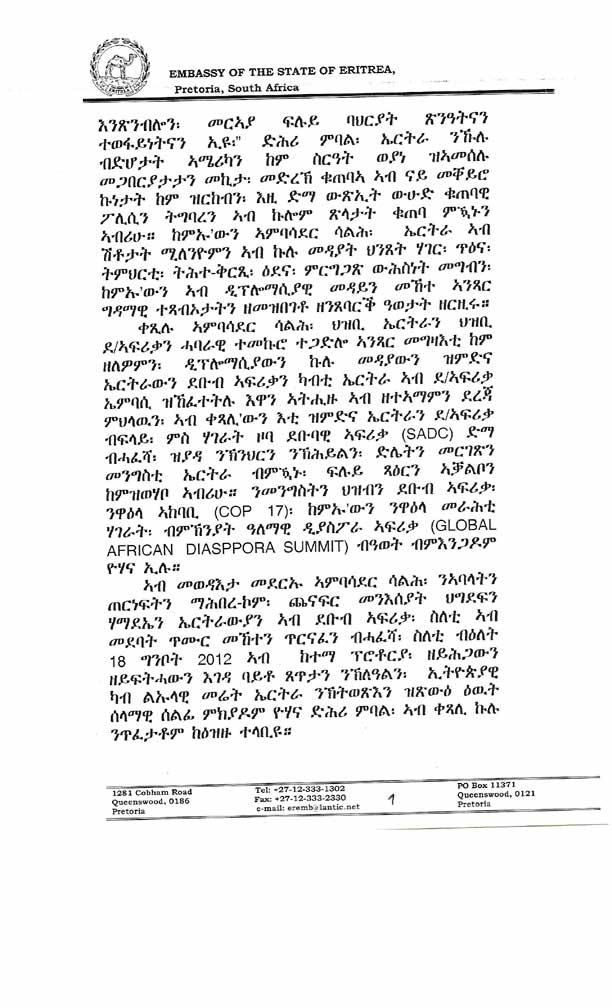 EMBASSY OF THE STATE OF ERITREA,
Pretoria, South Africa
እንጽንብሎን፡ መርኣያ ፍሉይ ባህርያት ጽንዓትናን
ተወፋይነትናን ኢዩ፡" ድሕሪ ምባል፡ ኤርትራ ንኹሉ
ብድሆታት ኣሜሪካን ከም ስርዓት ወያነ ዝኣመሰሉ
መጋበርያታታን መኪታ፡ መድረኽ ቁጠባኣ ኣብ ናይ መቐይሮ
ኩነታት ከም ዝርከብን፡ እዚ ድማ ውጽኢት ውሁድ ቁጠባዊ
ፖሊሲን ትግባረን ኣብ ኩሎም ጽላታት ቁጠባ ምዃኑን
ኣብሪሁ። ከምኡ'ውን ኣምባሳደር ሳልሕ፡ ኤርትራ ኣብ
ሽቶታት ሚለንዮምን ኣብ ኩሉ መዳያት ህንጸት ሃገር፡ ጥዕና፡
ትምህርቲ፡ ትሕተ-ቅርጺ፡ ዕደና፡ ምርግጋጽ ውሕስነት መግብን፡
ከምኡ'ውን ኣብ ዲፕሎማሲያዊ መዳይን መኸተ ኣንጻር
ግዳማዊ ተጻብኦታትን ዘመዝገበቶ ዘንጸባርቕ ዓወታት ዘርዚሩ።
ቀጺሉ ኣምባሳደር ሳልሕ፡ ህዝቢ ኤርትራን ህዝቢ
ደ/ኣፍሪቃን ሓባራዊ ተመኩሮ ተጋድሎ ኣንጻር መግዛእቲ ከም
ዘለዎምን፡ ዲፕሎማሲያውን ኩሉ መዳያውን ዝምድና
ኤርትራውን ደቡብ ኣፍሪቃን ካብቲ ኤርትራ ኣብ ደ/ኣፍሪቃ
ኤምባሲ ዝኸፈተትሉ እዋን ኣትሒዙ ኣብ ዘተኣማምን ደረጃ
ምህላዉን፡ ኣብ ቀጻሊ'ውን እቲ ዝምድና ኤርትራን ደ/ኣፍሪቃ
ብፍላይ፡ ምስ ሃገራት ዞባ ደቡባዊ ኣፍሪቃ (SADC) ድማ
ብሓፈሻ፡ ዝያዳ ንኽንህርን ንኽሕይልን፡ ድሌትን መርገጽን
መንግስቲ ኤርትራ ብምዃኑ፡ ፍሉይ ጻዕርን ኣቓልቦን
ከምዝወሃቦ ኣብሪሁ። ንመንግስትን ህዝብን ደቡብ ኣፍሪቃ፡
ንዋዕላ ኣከባቢ (COP 17)፡ ከምኡ'ውን ንዋዕላ መራሕቲ
ሃገራት፡ ብምኽንያት ዓለማዊ ዲያስፖራ ኣፍሪቃ (GLOBAL
AFRICAN DIASPPORA SUMMIT) ብዓወት ብምእንጋዶም
ዮሃና ኢሉ።
ኣብ መወዳእታ መደርኡ ኣምባሳደር ሳልሕ፡ ንኣባላትን
ጠርነፍትን ማሕበረ-ኮም፡ ጨናፍር መንእሰያት ህግደፍን
ሃማደኤን ኤርትራውያን ኣብ ደቡብ ኣፍሪቃ፡ ስለቲ ኣብ
መደባት ጥሙር መኸተን ጥርናፈን ብሓፈሻ፡ ስለቲ ብዕለት
18 ግንቦት 2012 ኣብ ከተማ ፕሮቶርያ፡ ዘይሕጋውን
ዘይፍትሓውን እገዳ ባይቶ ጸጥታን ንኽለዓልን፡ ኢትዮጵያዊ
ካብ ልኡላዊ መሬት ኤርትራ ንኽትወጽእን ዝጽውዕ ዕዉት
ሰላማዊ ሰልፊ ምክያዶም ዮሃና ድሕሪ ምባል፡ ኣብ ቀጻሊ ኩሉ
ንጥፈታቶም ከዕዝዙ ተላቢዩ።
1281 Cobham Road
Queenswood, 0186
Pretoria
Tel: +27-12-333-1302
Fax: +27-12-333-2330
e-mail: eremb@lantic.net
1
PO Box 11371
Queenswood, 0121
Pretoria